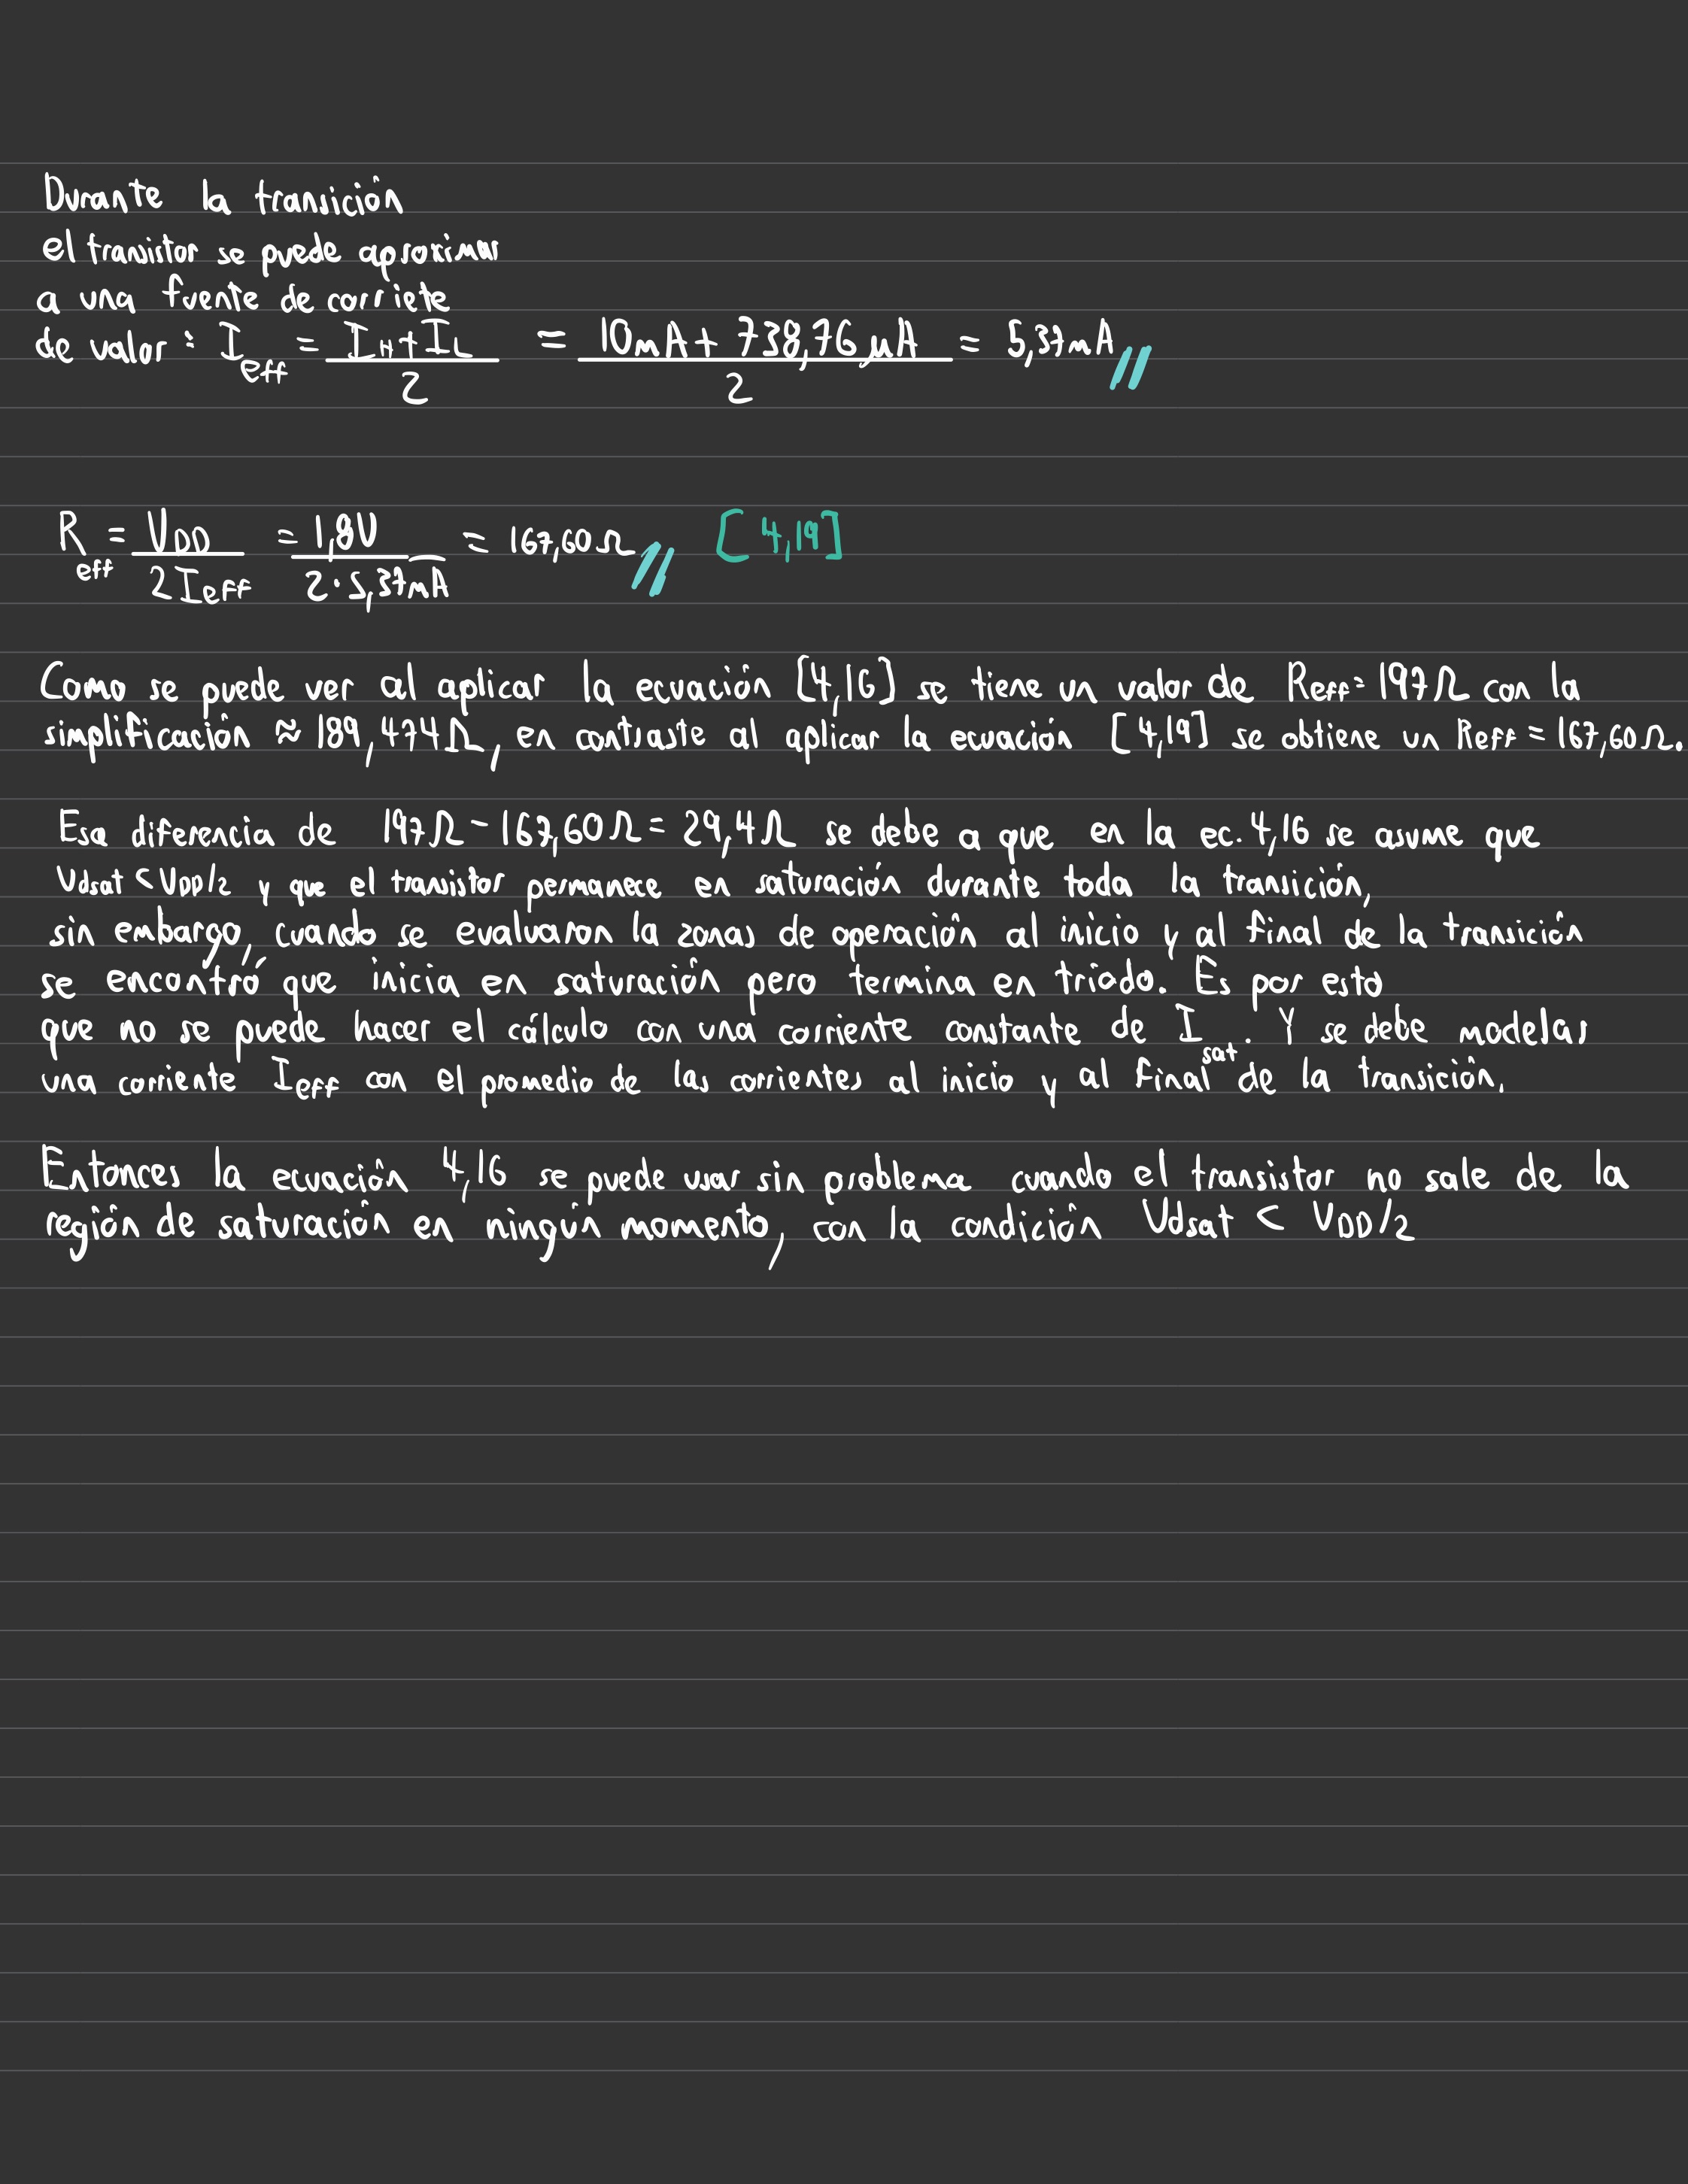 Durante la transición
el transitor se puede aproximar
a una fuente de corriete
de valor : I_eff = (I_H + I_L)/2 = (10mA + 738,76µA)/2 = 5,37mA
R_eff = V_DD/(2I_eff) = 1,8V/(2·5,37mA) = 167,60Ω [4,19]
Como se puede ver al aplicar la ecuación [4,16] se tiene un valor de Reff=197Ω con la
simplificación ≈ 189,474Ω, en contraste al aplicar la ecuación [4,19] se obtiene un Reff = 167,60Ω.
Esa diferencia de 197Ω - 167,60Ω = 29,4Ω se debe a que en la ec. 4,16 se asume que
Vdsat < VDD/2 y que el transistor permanece en saturación durante toda la transición,
sin embargo, cuando se evaluaron la zonas de operación al inicio y al final de la transición
se encontró que inicia en saturación pero termina en triodo. Es por esto
que no se puede hacer el cálculo con una corriente constante de I_sat. Y se debe modelar
una corriente Ieff con el promedio de las corrientes al inicio y al final de la transición.
Entonces la ecuación 4,16 se puede usar sin problema cuando el transistor no sale de la
región de saturación en ningún momento, con la condición Vdsat < VDD/2